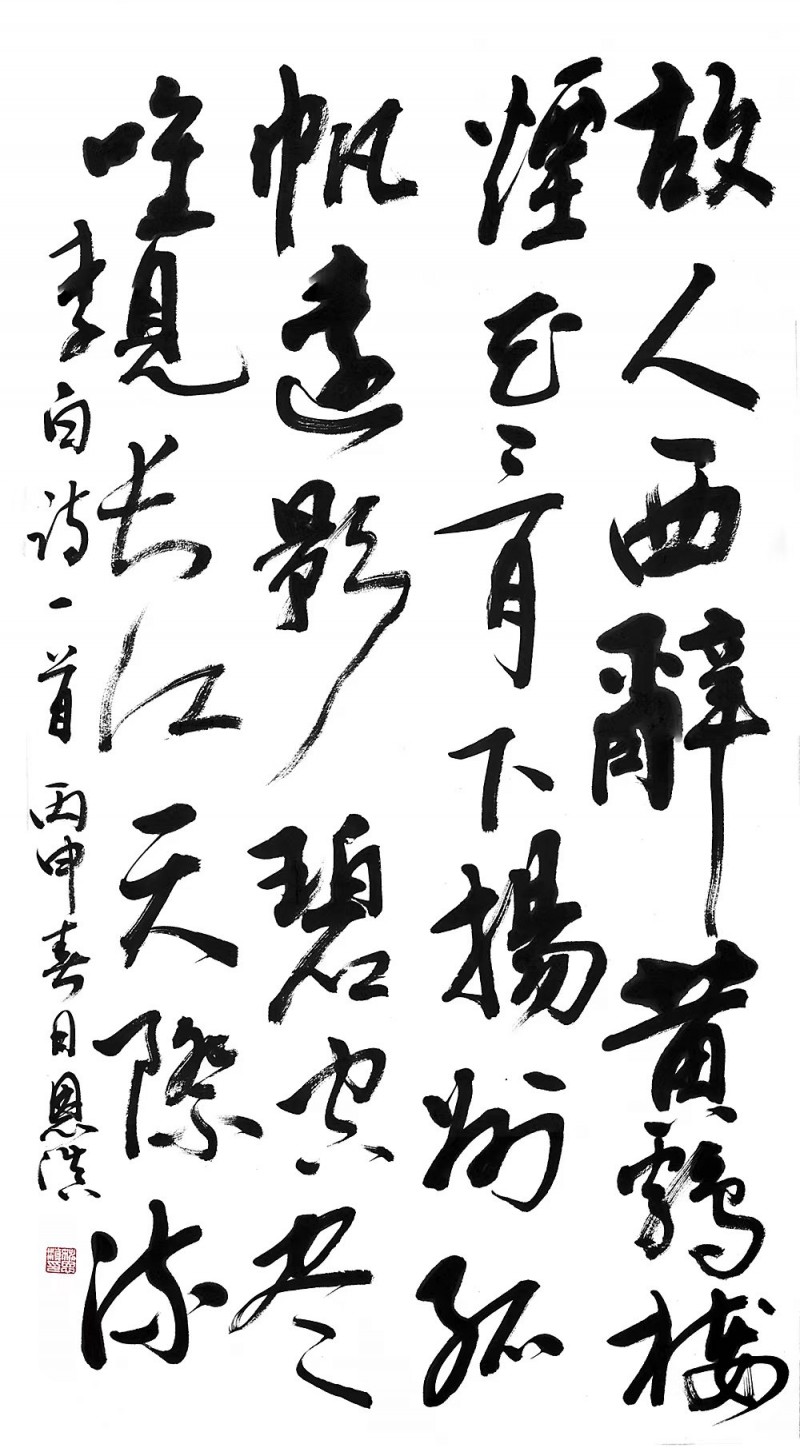 故人西辭黃鶴樓
煙花三月下揚州孤
帆遠影碧空尽
唯見长江天際流
李白诗一首 丙申春日恩滨